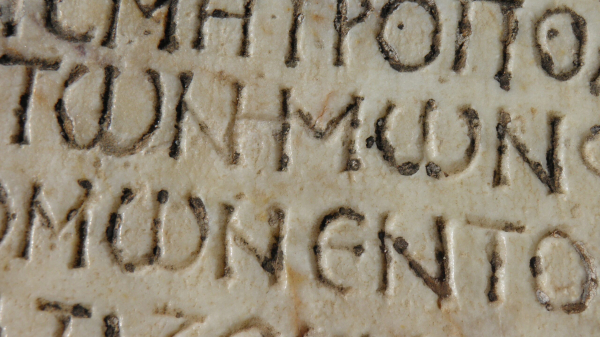 ϹΜΗΤΡΟΠΟ
ΤωΝΗΜωΝ
ΜωΝЄΝΤΟ